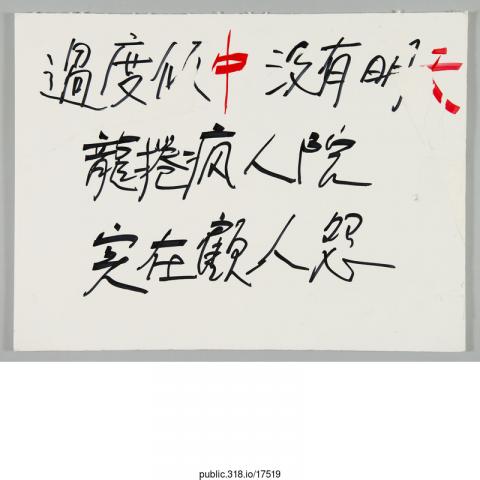 過度傾中 沒有明天
龍捲瘋人院
实在顧人怨
public.318.io/17519